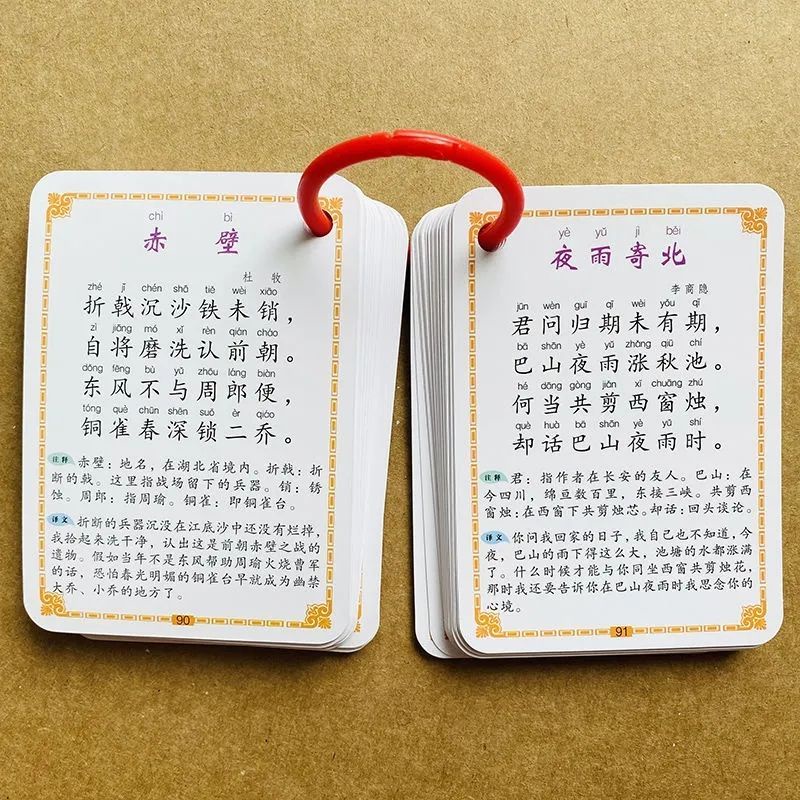 chì bì
赤壁
杜牧
zhé jǐ chén shā tiě wèi xiāo
折戟沉沙铁未销，
zì jiāng mó xǐ rèn qián cháo
自将磨洗认前朝。
dōng fēng bù yǔ zhōu láng biàn
东风不与周郎便，
tóng què chūn shēn suǒ èr qiáo
铜雀春深锁二乔。
注释 赤壁：地名，在湖北省境内。折戟：折
断的戟。这里指战场留下的兵器。销：锈
蚀。周郎：指周瑜。铜雀：即铜雀台。
译文 折断的兵器沉没在江底沙中还没有烂掉，
我拾起来洗干净，认出这是前朝赤壁之战的
遗物。假如当年不是东风帮助周瑜火烧曹军
的话，恐怕春光明媚的铜雀台早就成为幽禁
大乔、小乔的地方了。
90
yè yǔ jì běi
夜雨寄北
李商隐
jūn wèn guī qī wèi yǒu qī
君问归期未有期，
bā shān yè yǔ zhǎng qiū chí
巴山夜雨涨秋池。
hé dāng gòng jiǎn xī chuāng zhú
何当共剪西窗烛，
què huà bā shān yè yǔ shí
却话巴山夜雨时。
注释 君：指作者在长安的友人。巴山：在
今四川，绵亘数百里，东接三峡。共剪西
窗烛：在西窗下共剪烛芯。却话：回头谈论。
译文 你问我回家的日子，我自己也不知道，今
夜，巴山的雨下得这么大，池塘的水都涨满
了。什么时候才能与你同坐西窗共剪烛花，
那时我还要告诉你在巴山夜雨时我思念你的
心境。
91